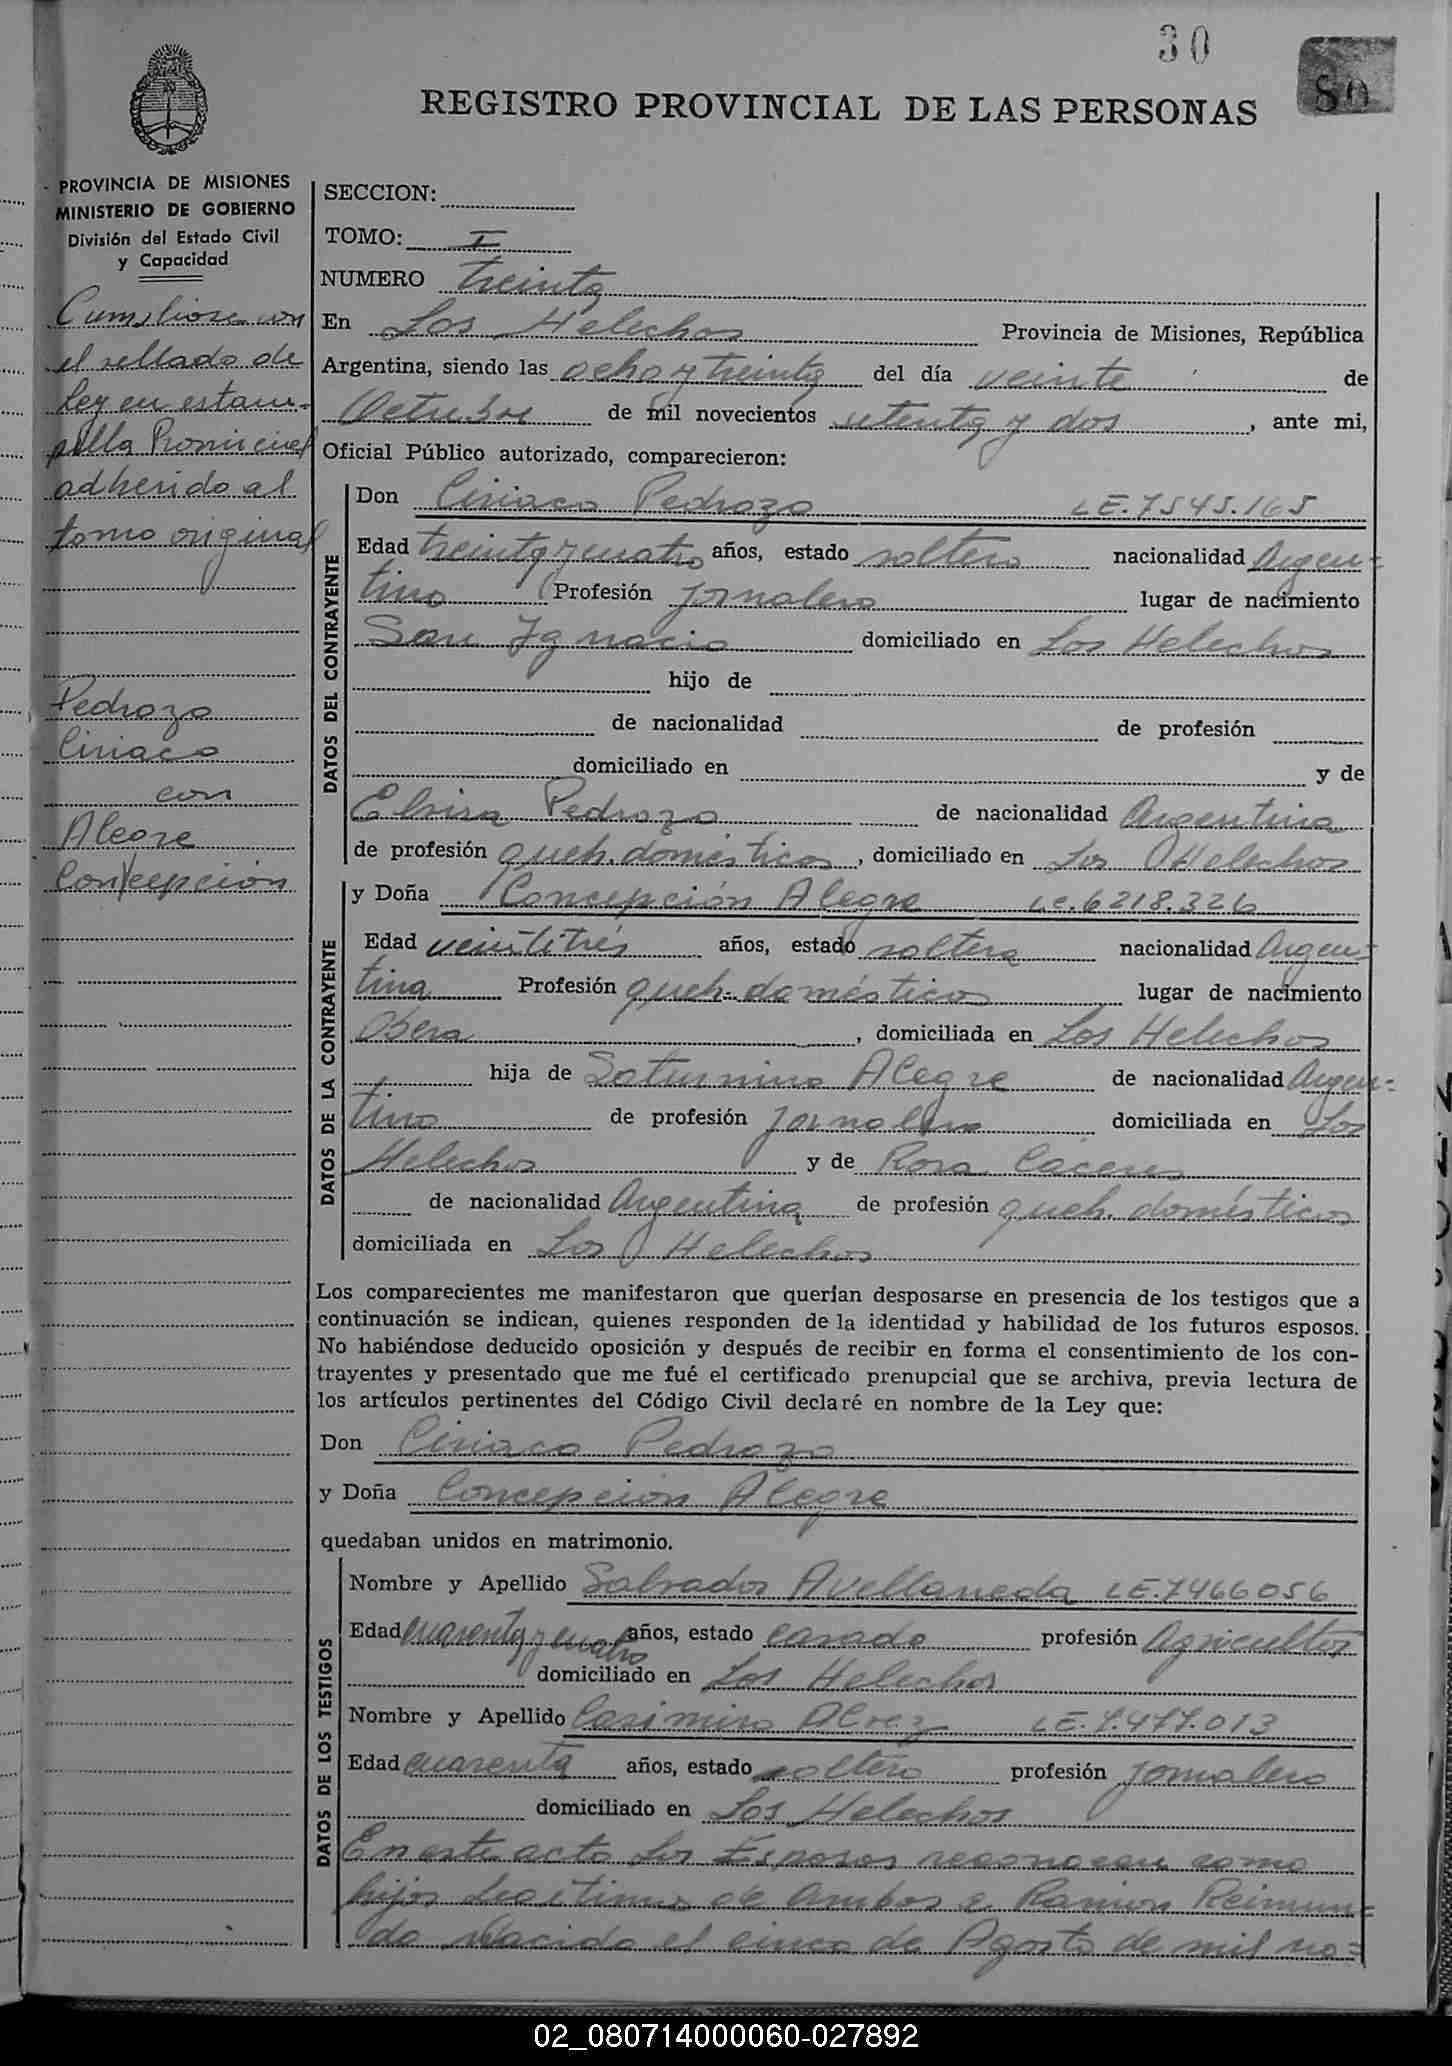 30
80
REGISTRO PROVINCIAL DE LAS PERSONAS
PROVINCIA DE MISIONES
MINISTERIO DE GOBIERNO
División del Estado Civil
y Capacidad
Cumpliose con
el sellado de
Ley en estam-
pilla Provincial
adherido al
tomo original
Pedrozo
Ciriaco
con
Alegre
Concepción
SECCION:
TOMO: I
NUMERO treinta
En Los Helechos Provincia de Misiones, República
Argentina, siendo las ocho y treinta del día veinte de
Octubre de mil novecientos setenta y dos, ante mi,
Oficial Público autorizado, comparecieron:
DATOS DEL CONTRAYENTE
Don Ciriaco Pedrozo LE.7545.165
Edad treinta y cuatro años, estado soltero nacionalidad Argen-
tino Profesión jornalero lugar de nacimiento
San Ignacio domiciliado en Los Helechos
hijo de
de nacionalidad de profesión
domiciliado en y de
Elvira Pedrozo de nacionalidad Argentina
de profesión queh. domésticos, domiciliado en Los Helechos
DATOS DE LA CONTRAYENTE
y Doña Concepción Alegre LC.6218.326
Edad veintitrés años, estado soltera nacionalidad Argen-
tina Profesión queh. domésticos lugar de nacimiento
Obera, domiciliada en Los Helechos
hija de Saturnino Alegre de nacionalidad Argen-
tino de profesión jornalero domiciliada en Los
Helechos y de Rosa Cáceres
de nacionalidad Argentina de profesión queh. domésticos
domiciliada en Los Helechos
Los comparecientes me manifestaron que querían desposarse en presencia de los testigos que a
continuación se indican, quienes responden de la identidad y habilidad de los futuros esposos.
No habiéndose deducido oposición y después de recibir en forma el consentimiento de los con-
trayentes y presentado que me fué el certificado prenupcial que se archiva, previa lectura de
los artículos pertinentes del Código Civil declaré en nombre de la Ley que:
Don Ciriaco Pedrozo
y Doña Concepción Alegre
quedaban unidos en matrimonio.
DATOS DE LOS TESTIGOS
Nombre y Apellido Salvador Avellaneda LE.7466056
Edad cuarenta y cuatro años, estado casado profesión Agricultor
domiciliado en Los Helechos
Nombre y Apellido Casimiro Alvez LE.7.477.013
Edad cuarenta años, estado soltero profesión jornalero
domiciliado en Los Helechos
En este acto los Esposos reconocen como
hijos legítimos de ambos a Ramon Reimun-
do Nacido el cinco de Agosto de mil no-
02_080714000060-027892